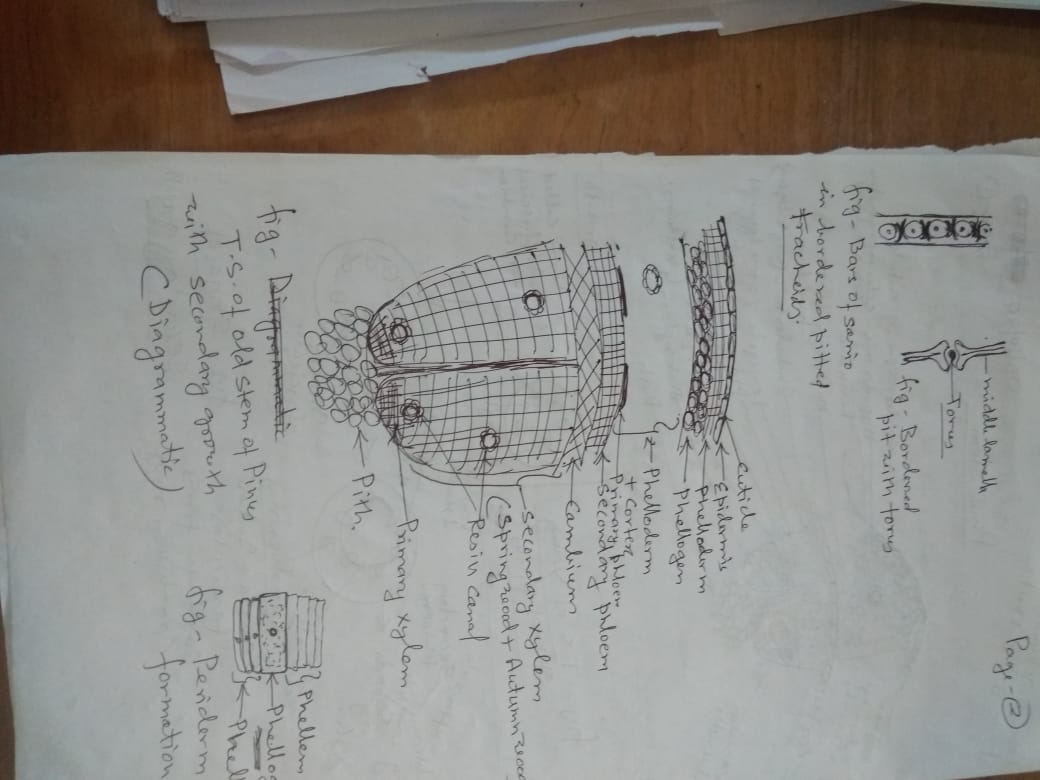 Page-②
middle lamella
Torus
fig- Bordered
pit with torus
fig- Bars of sanio
in bordered pitted
tracheids.
cuticle
Epidermis
phelloderm
phellogen
Phelloderm
+ Cortex
Primary phloem
Secondary phloem
Cambium
Secondary xylem
(Spring wood + Autumn wood
Resin canal
Primary xylem
Pith.
fig- Diagrammatic
T.S. of old stem of Pinus
with secondary growth
(Diagrammatic)
Phellem
fig- Periderm
formation